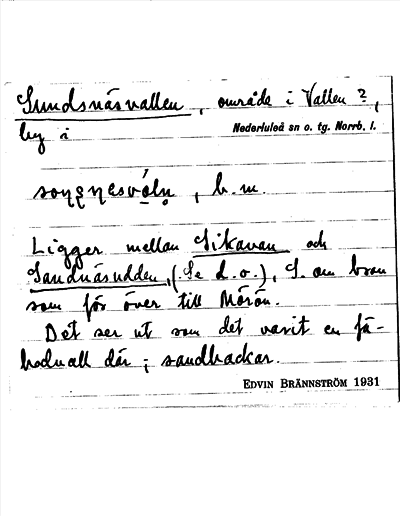 Sundsnäsvallen, område i Vallen?,
by i Nederluleå sn o. tg. Norrb. l.
, b. m.
Ligger mellan Sikavan och
Sandnäsudden, (Se d. o.), S. om bron
som för över till Mörön.
Det ser ut som det varit en fä-
bodvall där; sandbackar.
EDVIN BRÄNNSTRÖM 1931